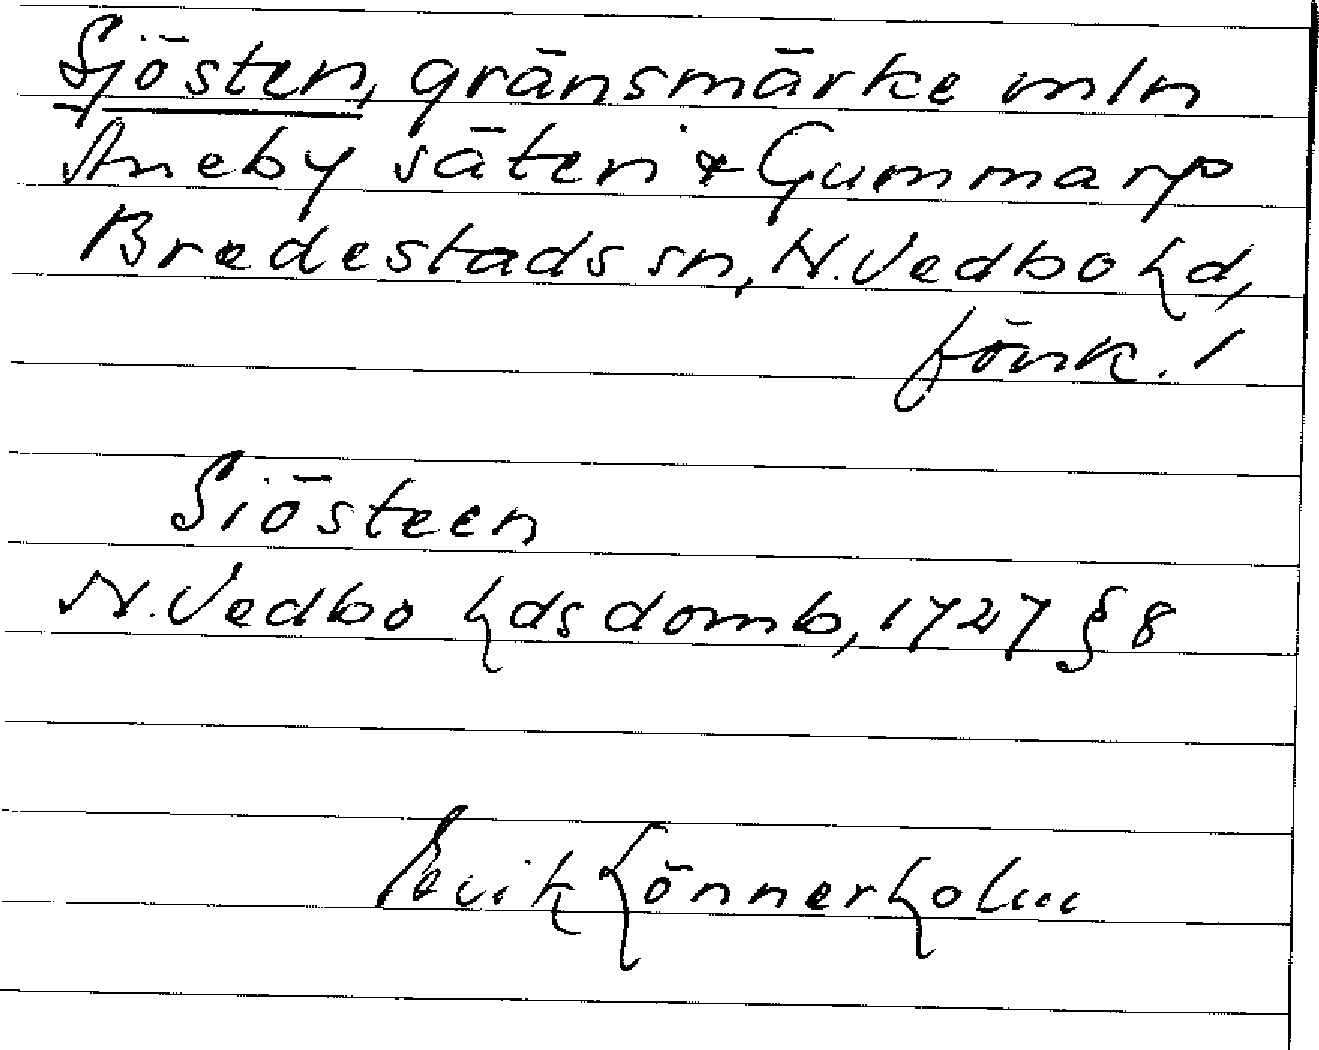 Sjösten, gränsmärke mln
Aneby säteri & Gummarp
Bredestads sn, N. Vedbo hd,
Jönk. l
Siösteen
N. Vedbo hds domb, 1727 § 8
Erik Hönnerholm